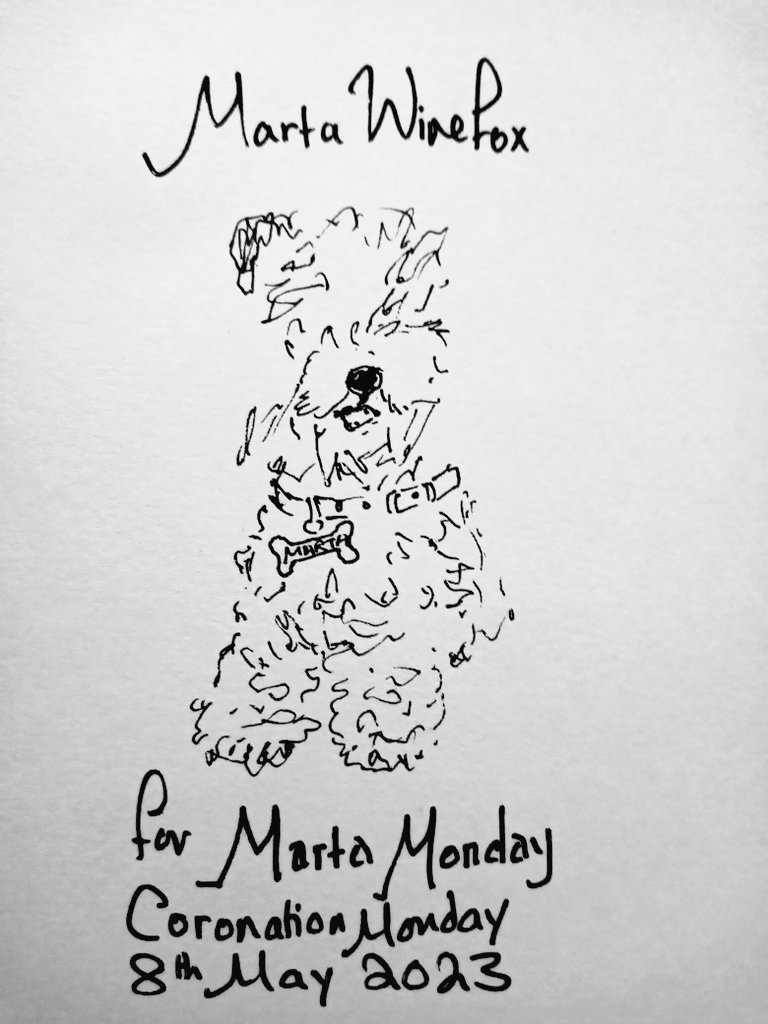 Marta WineFox
MARTA
for Marta Monday
Coronation Monday
8th May 2023